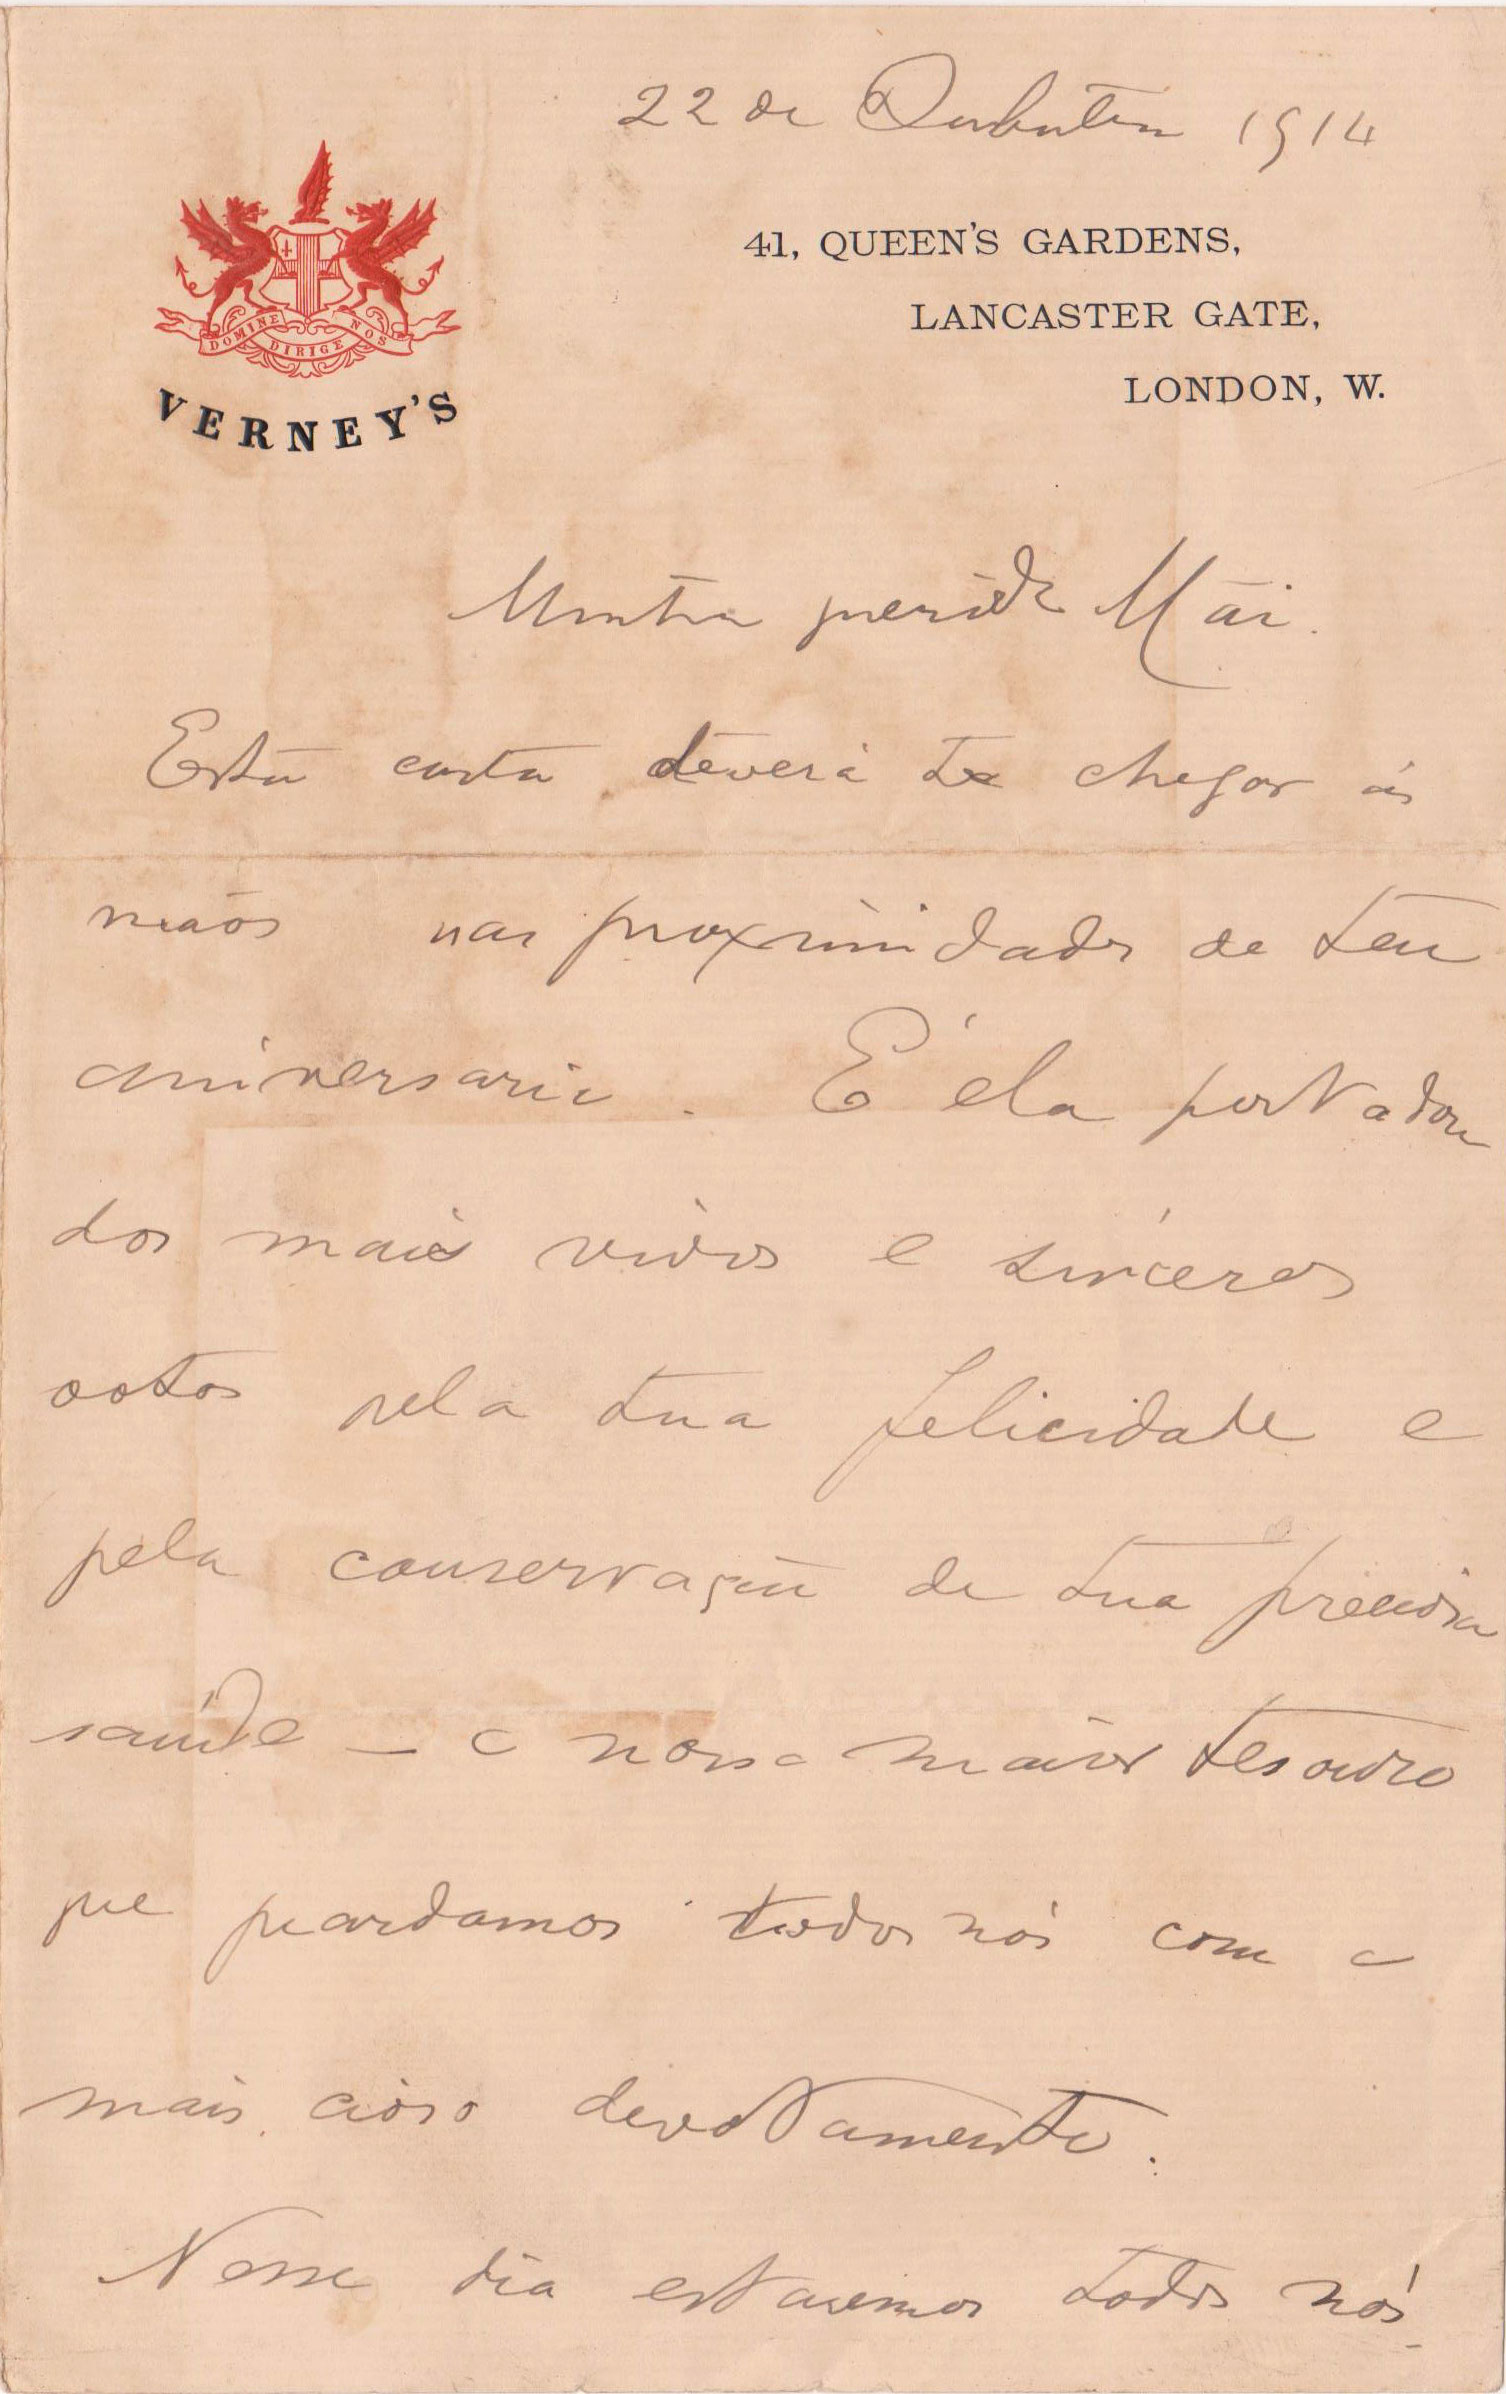 22 de Outubro 1914
DOMINE DIRIGE NOS
VERNEY'S
41, QUEEN'S GARDENS,
LANCASTER GATE,
LONDON, W.
Minha querida Mãi.
Esta carta deverá te chegar ás
mãos nas proximidades de teu
aniversario. É ela portadora
dos mais vivos e sinceros
votos pela tua felicidade e
pela conservação de tua preciosa
saúde — o nosso maior tesouro
que guardamos todos nós com o
mais cioso devotamento.
Nesse dia estaremos todos nós